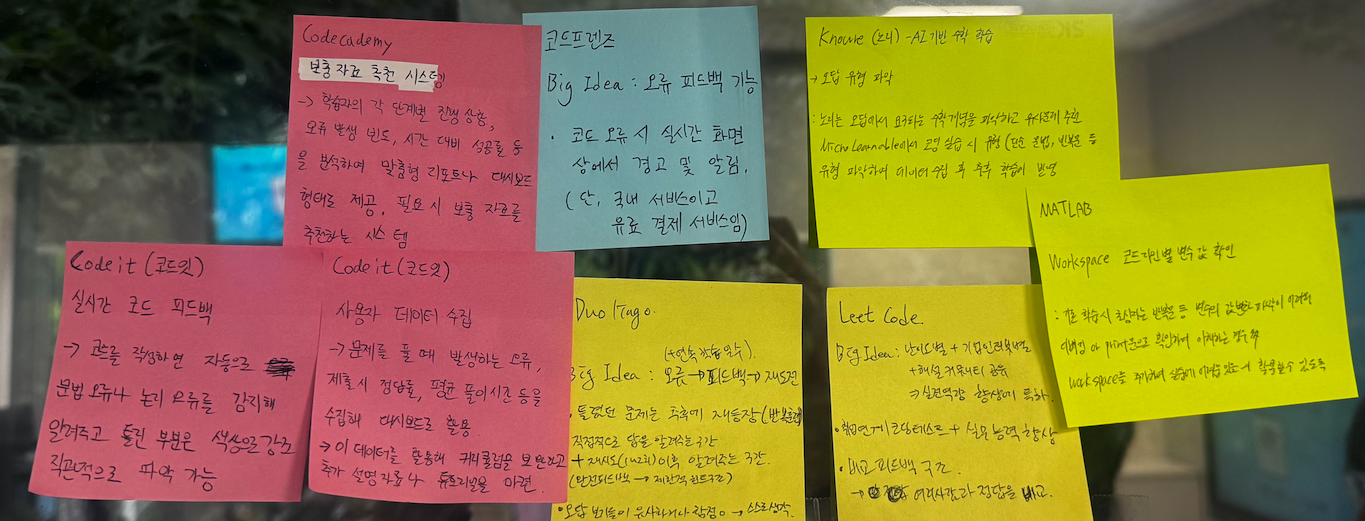 Codecademy
보충자료 추천 시스템
→ 학습자의 각 단계별 진행 상황,
오류 발생 빈도, 시간 대비 성공률 등
을 분석하여 맞춤형 리포트나 대시보드
형태로 제공, 필요 시 보충 자료를
추천하는 시스템
코드프렌즈
Big Idea : 오류 피드백 기능
· 코드 오류 시 실시간 화면
상에서 경고 및 알림.
(단, 국내 서비스이고
유료 결제 서비스임)
Knowre (노리) - AI 기반 수학 학습
→ 오답 유형 파악
: 노리는 오답에서 요구되는 수학개념을 파악하고 유사문제 추천
에서 코딩 실습 시 유형(단순 문법, 반복문 등
유형 파악하여 데이터 수집 후 추후 학습에 반영
MATLAB
Workspace 코드라인별 변수 값 확인
: 기존 학습시 반복문 등 변수의 값변화 파악이 어려워
디버깅 or print문으로 확인하며 이해하는 경우
Workspace를 추가하여 활용할 수 있도록
Codeit (코드잇)
실시간 코드 피드백
→ 코드를 작성하면 자동으로
문법 오류나 논리 오류를 감지해
알려주고 틀린 부분은 색상으로 강조
직관적으로 파악 가능
Codeit (코드잇)
사용자 데이터 수집
→ 문제를 풀 때 발생하는 오류,
제출 시 정답률, 평균 풀이시간 등을
수집해 대시보드로 활용.
→ 이 데이터를 활용해 커리큘럼을 보완하고
추가 설명 자료나 튜토리얼을 마련.
Duolingo.
(+연속학습일수).
Big Idea : 오류→피드백→재도전
· 틀렸던 문제는 추후에 재등장(반복문제)
직접적으로 답을 알려주는 구간
+ 재시도(1H2회) 이후 알려주는 구간.
· 오답 보기들이 유사하거나 함정 → 스스로생각.
Leet Code.
Big Idea : 난이도별 + 기업인터뷰별
+ 해설 커뮤니티 공유
⇒ 실전역량 향상에 특화.
· 취업연계 코딩테스트 + 실무능력 향상
· 비교 피드백 구간.
→ 여러사람과 정답을 비교.